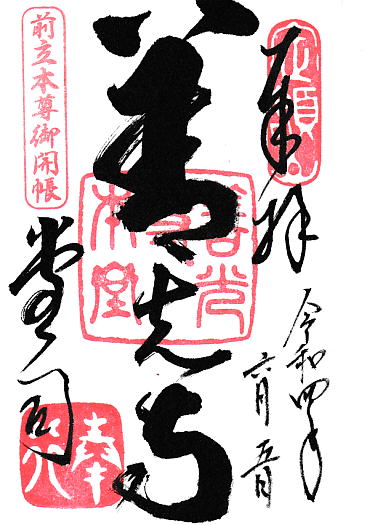 奉拝
令和四年
六月五日
善光寺
善光
本堂
前立本尊御開帳
堂司